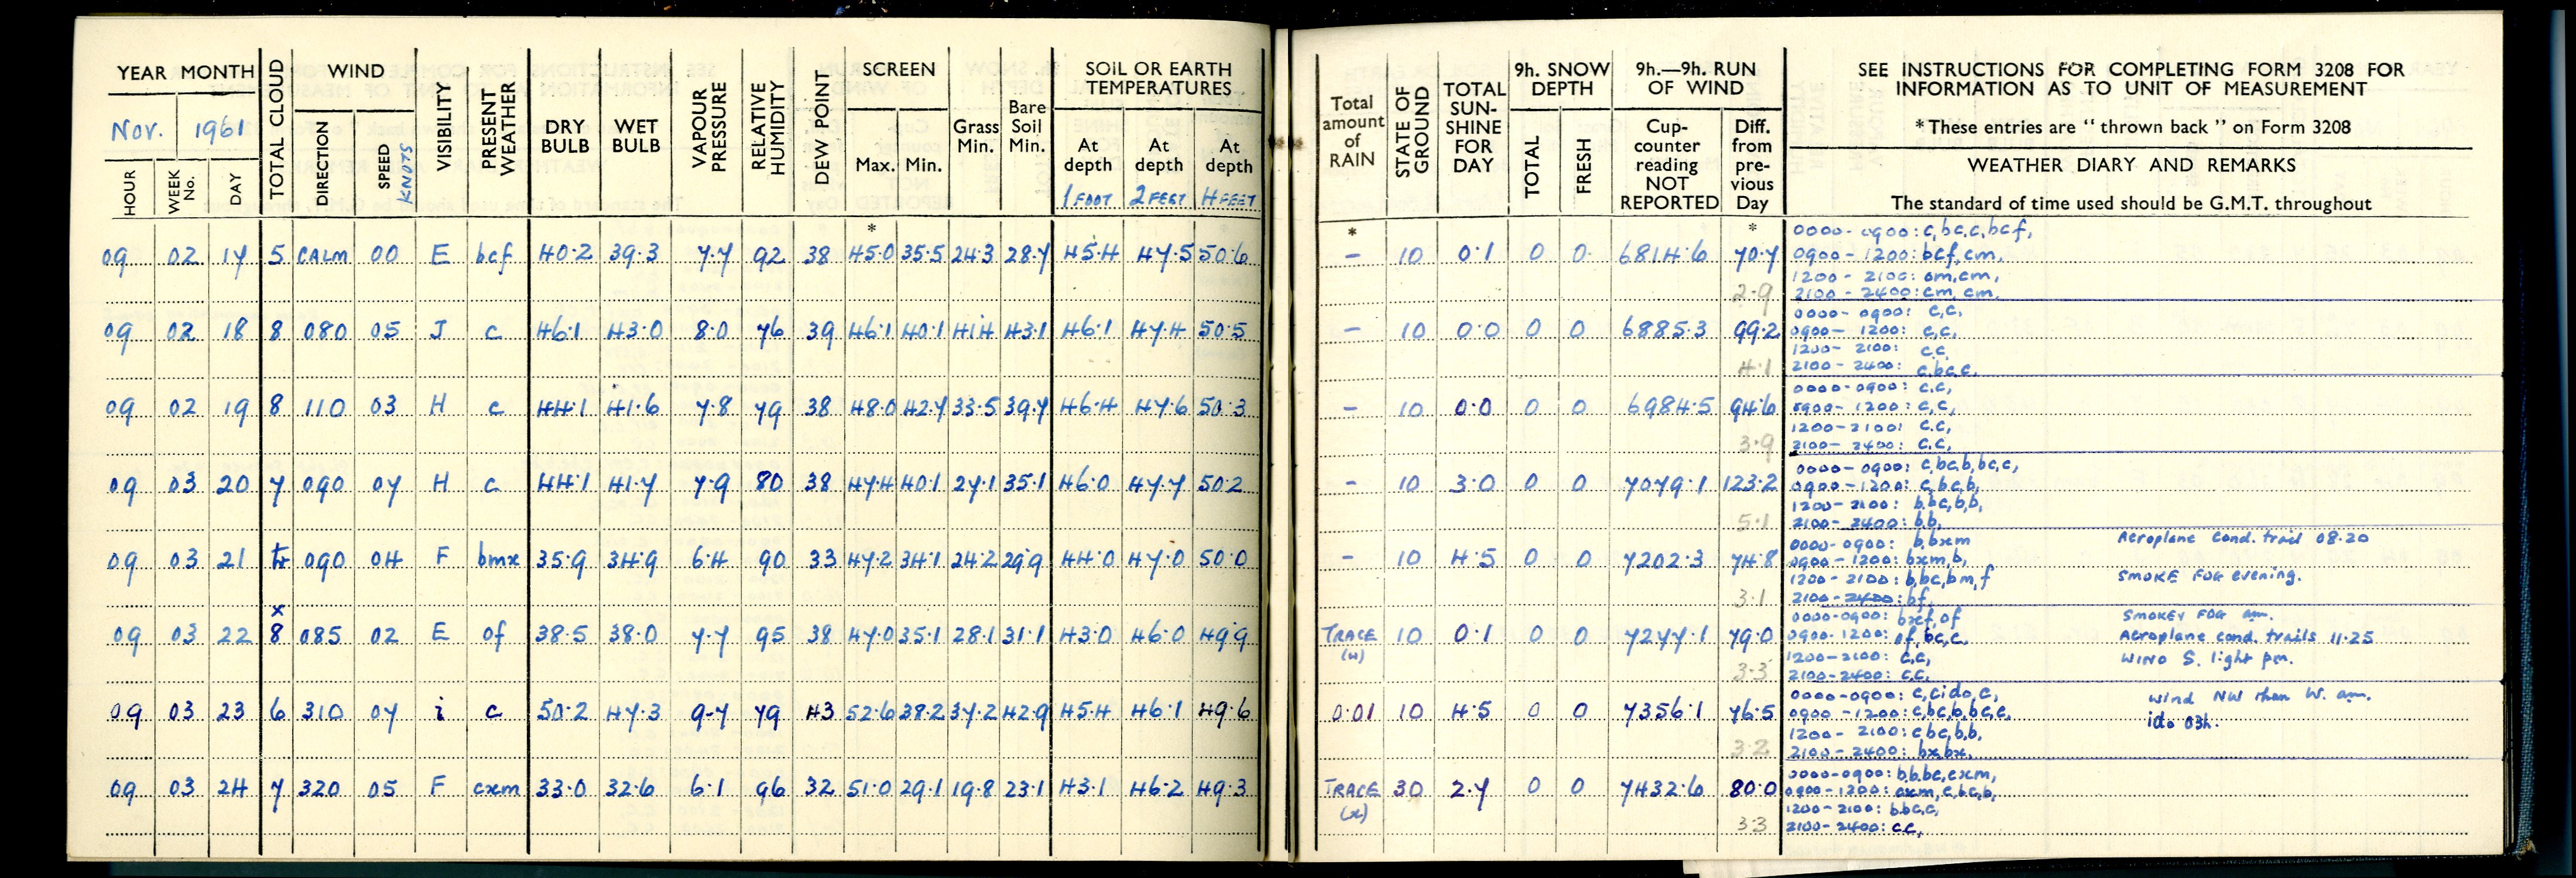 YEAR MONTH
Nov. 1961
HOUR WEEK No. DAY TOTAL CLOUD
WIND
DIRECTION SPEED KNOTS
VISIBILITY
PRESENT WEATHER
DRY BULB WET BULB
VAPOUR PRESSURE
RELATIVE HUMIDITY
DEW POINT
SCREEN
Max. Min.
Grass Min.
Bare Soil Min.
SOIL OR EARTH TEMPERATURES
At depth 1 FOOT At depth 2 FEET At depth 4 FEET
Total amount of RAIN
STATE OF GROUND
TOTAL SUN-SHINE FOR DAY
9h. SNOW DEPTH
TOTAL FRESH
9h.—9h. RUN OF WIND
Cup-counter reading NOT REPORTED
Diff. from pre-vious Day
SEE INSTRUCTIONS FOR COMPLETING FORM 3208 FOR
INFORMATION AS TO UNIT OF MEASUREMENT
*These entries are “ thrown back ” on Form 3208
WEATHER DIARY AND REMARKS
The standard of time used should be G.M.T. throughout
* * *
09 02 17 5 CALM 00 E bcf 40.2 39.3 7.7 92 38 45.0 35.5 24.3 28.7 45.4 47.5 50.6 — 10 0.1 0 0 6814.6 70.7
2.9
0000-0900: c,bc,c,bcf,
0900-1200: bcf,cm,
1200-2100: om,cm,
2100-2400: cm,cm,
09 02 18 8 080 05 J c 46.1 43.0 8.0 76 39 46.1 40.1 41.4 43.1 46.1 47.4 50.5 — 10 0.0 0 0 6885.3 99.2
4.1
0000-0900: c,c,
0900-1200: c,c,
1200-2100: c,c
2100-2400: c,bc,c,
09 02 19 8 110 03 H c 44.1 41.6 7.8 79 38 48.0 42.7 33.5 39.7 46.4 47.6 50.3 — 10 0.0 0 0 6984.5 94.6
3.9
0000-0900: c,c,
0900-1200: c,c,
1200-2100: c,c,
2100-2400: c,c,
09 03 20 7 090 07 H c 44.1 41.7 7.9 80 38 47.4 40.1 27.1 35.1 46.0 47.7 50.2 — 10 3.0 0 0 7079.1 123.2
5.1
0000-0900: c,bc,b,bc,c,
0900-1200: c,bc,b,
1200-2100: b,bc,b,b,
2100-2400: b,b,
09 03 21 090 04 F bmx 35.9 34.9 6.4 90 33 47.2 34.1 24.2 29.9 44.0 47.0 50.0 — 10 4.5 0 0 7202.3 74.8
3.1
0000-0900: b,bxm
0900-1200: bxm,b,
1200-2100: b,bc,bm,f
2100-2400: bf,
Aeroplane Cond. trail 08.20
SMOKE FOG evening.
x
09 03 22 8 085 02 E of 38.5 38.0 7.7 95 38 47.0 35.1 28.1 31.1 43.0 46.0 49.9 TRACE (w) 10 0.1 0 0 7277.1 79.0
3.3
0000-0900: bxcf,of
0900-1200: of,bc,c,
1200-2100: c,c,
2100-2400: c,c,
SMOKEY FOG am.
Aeroplane cond. trails 11.25
WIND S. light pm.
09 03 23 6 310 07 i c 50.2 47.3 9.7 79 43 52.6 38.2 37.2 42.9 45.4 46.1 49.6 0.01 10 4.5 0 0 7356.1 76.5
3.2
0000-0900: c,cido,c,
0900-1200: c,bc,b,bc,c,
1200-2100: c,bc,b,b,
2100-2400: bx,bx,
Wind NW then W. am.
ido 03h.
09 03 24 7 320 05 F cxm 33.0 32.6 6.1 96 32 51.0 29.1 19.8 23.1 43.1 46.2 49.3 TRACE (x) 30 2.7 0 0 7432.6 80.0
3.3
0000-0900: b,b,bc,cxm,
0900-1200: cxm,c,bc,b,
1200-2100: b,bc,c,
2100-2400: c,c,